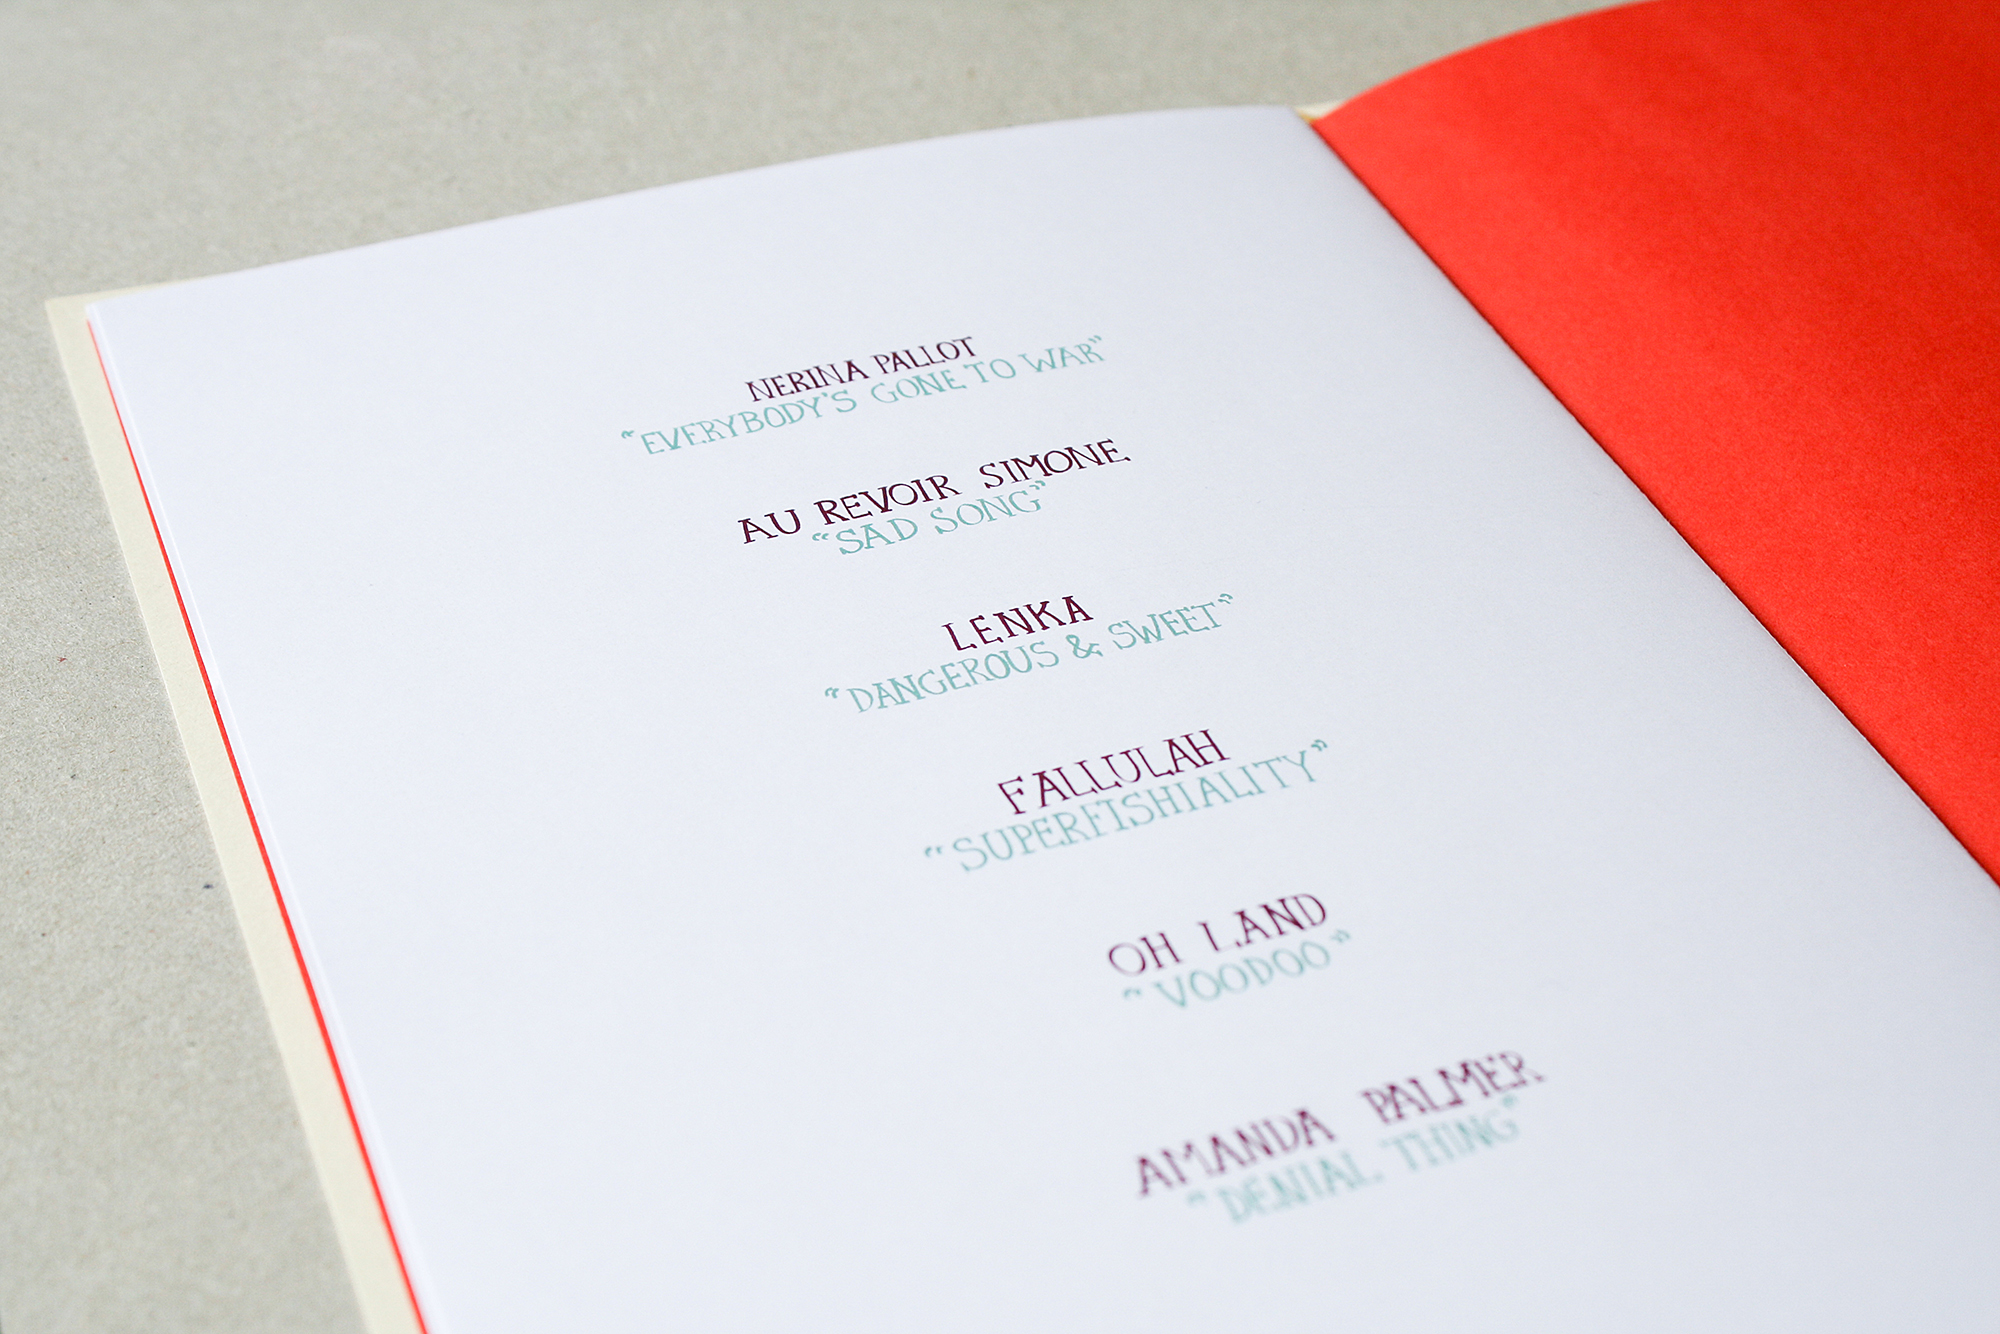 NERINA PALLOT
"EVERYBODY'S GONE TO WAR"
AU REVOIR SIMONE
"SAD SONG"
LENKA
"DANGEROUS & SWEET"
FALLULAH
"SUPERFISHIALITY"
OH LAND
"VOODOO"
AMANDA PALMER
"DENIAL THING"